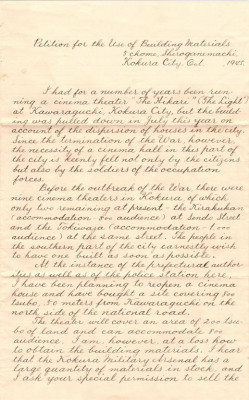 Petition for the Use of Building Materials
5 chome, Shiroganemachi,
Kokura City, Oct 1945.
I had for a number of years been run-
ning a cinema theater "The Hikari" (The Light)
at Kawaraguchi, Kokura City, but the build-
ing was pulled down in July this year on
account of the dispersion of houses in the city.
Since the termination of the War, however,
the necessity of a cinema hall in this part of
the city is keenly felt not only by the citizens
but also by the soldiers of the occupation
forces.
Before the outbreak of the War there were
nine cinema theaters in Kokura, of which
only two remaining at present: the Kirakukan
(accommodation audience) at Sendo Street
and the Tokiwaza (accommodation
audience) at the same street. The people in
the southern part of the city earnestly wish
to have one built as soon as possible.
At the instance of the prefectural author-
ities as well as of the police station here,
I have been planning to reopen a cinema
house and have bought a site covering
tsubo, meters from Kawaraguchi on the
north side of the national road.
The theater will cover an area of tsu-
bo of land and can accommodate
audience. I am, however, at a loss how
to obtain the building materials. I hear
that the Kokura Military Arsenal has a
large quantity of materials in stock, and
I ask your special permission to sell the